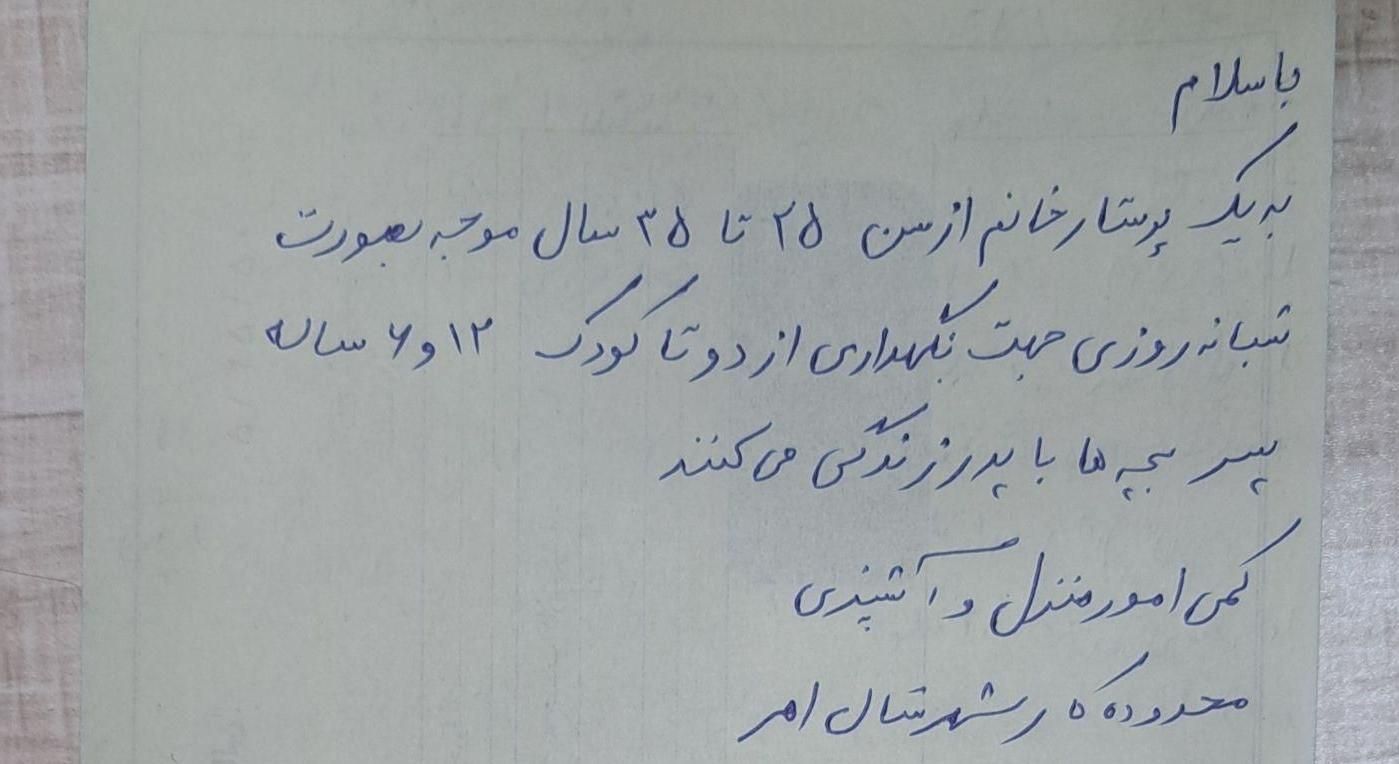 با سلام
به یک پرستار خانم از سن ۲۵ تا ۳۵ سال موجه بصورت
شبانه روزی جهت نگهداری از دو تا کودک ۱۲ و ۶ ساله
پسر بچه ها با پدر زندگی می کنند
کمی امور منزل و آشپزی
محدوده کار شهر شمال